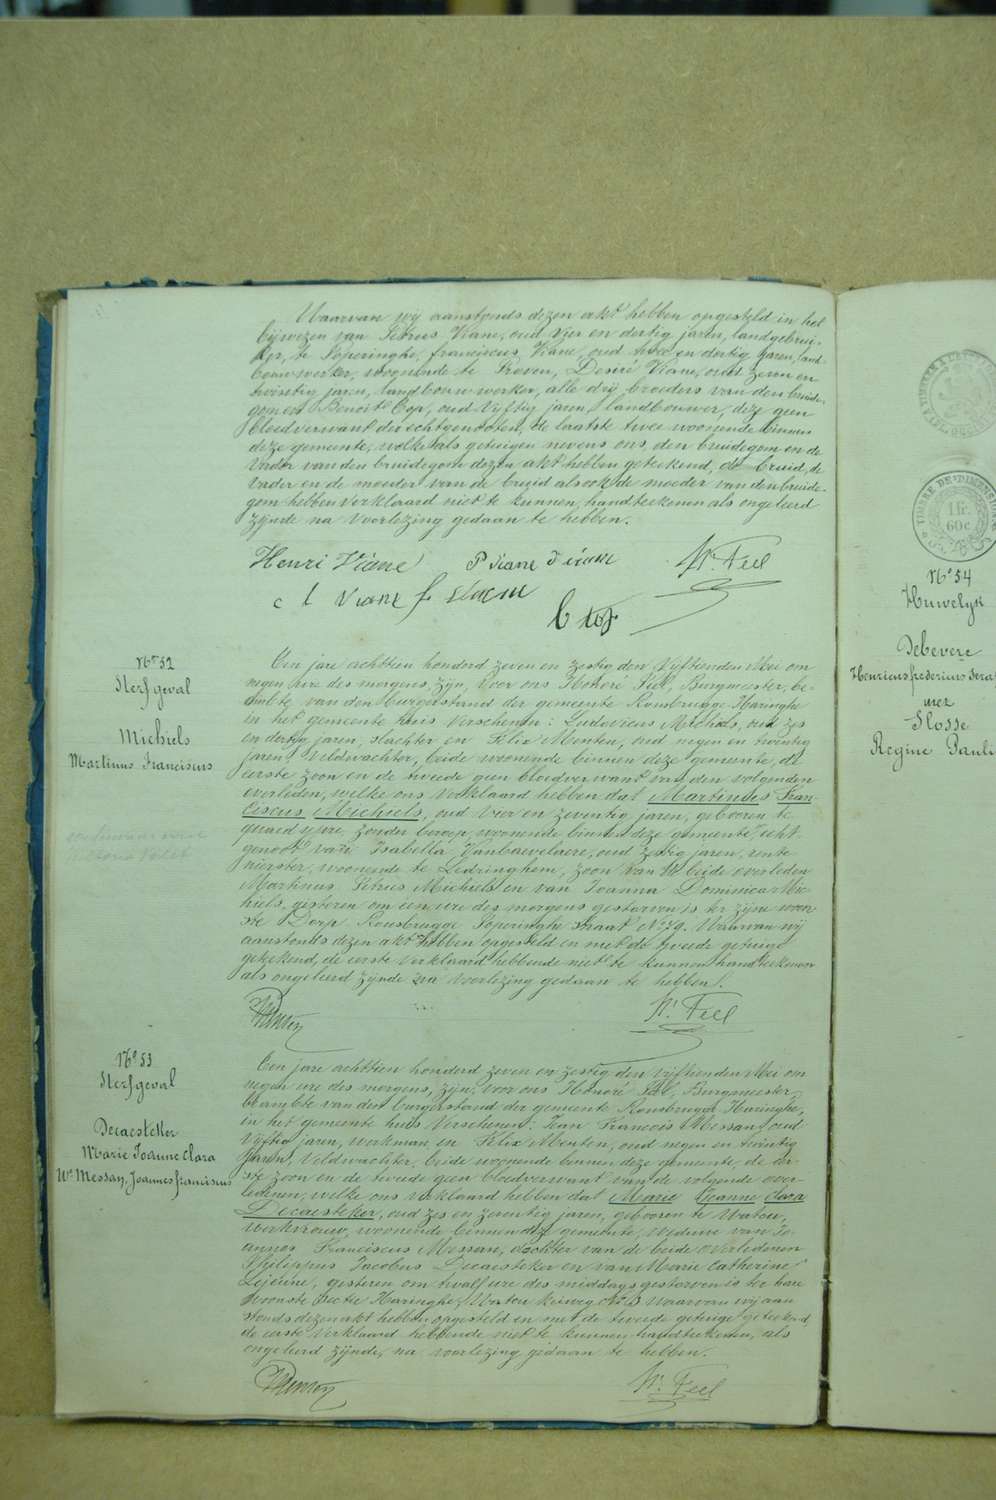 Waarvan wij aanstonds dezen akt hebben opgesteld in het
bijwezen van Petrus Viane, oud vier en dertig jaren, landgebrui-
ker, te Poperinghe, franciscus Viane, oud twee en dertig jaren, land
bouwwerker, woonende te Proven, Desiré Viane, oud zeven en
twintig jaren, landbouwwerker, alle drij broeders van den bruide-
gom en Benoit Cop, oud vijftig jaren, landbouwer, deze geen
bloedverwant der echtgenooten, de laatste twee woonende binnen
deze gemeente, welke als getuigen nevens ons, den bruidegom en de
vader van den bruidegom dezen akt hebben geteekend, de bruid, de
vader en de moeder van de bruid alsook de moeder van den bruide-
gom hebben verklaard niet te kunnen handteekenen als ongeleerd
zijnde na voorlezing gedaan te hebben.
Henri Viane P Viane D Viane Hré. Feel
c l Viane f Viane
b Cop
No 52
Sterfgeval
Michiels
Martinus Franciscus
Een jare achttien honderd zeven en zestig den vijftienden Mei om
negen ure des morgens, zijn, voor ons Honoré Feel, Burgmeester, be-
ambte van den burgerstand der gemeente Rousbrugge Haringhe
in het gemeente huis verschenen: Ludovicus Michiels, oud zes
en dertig jaren, slachter en Felix Menten, oud negen en twintig
jaren, Veldwachter, beide woonende binnen deze gemeente, de
eerste zoon en de tweede geen bloedverwant van den volgenden
overleden, welke ons verklaard hebben dat Martinus Fran-
ciscus Michiels, oud vier en zeventig jaren, geboren te
quaedypre zonder beroep, woonende binnen deze gemeente, echt-
genoot van Isabella Vanbaevelaere, oud zestig jaren, rente-
nierster, woonende te Ledringhem, zoon van de beide overleden
Martinus Petrus Michiels en van Joanna Dominica Mi-
chiels, gisteren om een ure des morgens gestorven is ter zijne woon
ste Dorp Rousbrugge Poperinghe straat No 79. Waarvan wij
aanstonds dezen akt hebben opgesteld en met de tweede getuige
geteekend, de eerste verklaard hebbende niet te kunnen handteekenen
als ongeleerd zijnde na voorlezing gedaan te hebben.
Menten Hré. Feel
No 53
Sterfgeval
Decaesteker
Marie Joanne Clara
We Messan, Joannes franciscus
Een jare achttien honderd zeven en zestig den vijftienden Mei om
negen ure des morgens, zijn, voor ons Honoré Feel, Burgmeester,
beambte van den burgerstand der gemeente Rousbrugge Haringhe,
in het gemeente huis verschenen: Jean Francois Messan, oud
vijftig jaren, werkman en Felix Menten, oud negen en twintig
jaren, Veldwachter, beide woonende binnen deze gemeente, de eer-
ste zoon en de tweede geen bloedverwant van de volgende over-
ledenen, welke ons verklaard hebben dat Marie Joanne Clara
Decaesteker, oud zes en zeventig jaren, geboren te Watou,
werkvrouw, woonende binnen deze gemeente, Weduwe van Jo-
annes Franciscus Messan, dochter van de beide overledenen
Philippus Jacobus Decaesteker en van Marie Catherine
Lejeune, gisteren om twalf ure des middags gestorven is ter hare
woonste sectie Haringhe, Watou keiweg No Waarvan wij aan
stonds dezen akt hebben opgesteld en met de tweede getuige geteekend,
de eerste verklaard hebbende niet te kunnen handteekenen, als
ongeleerd zijnde, na voorlezing gedaan te hebben.
Menten Hré. Feel
TIMBRE DE DIMENSION
1 fr.
60c
No 54
Huwelyk
Debevere
Henricus
met
Slosse
Regine